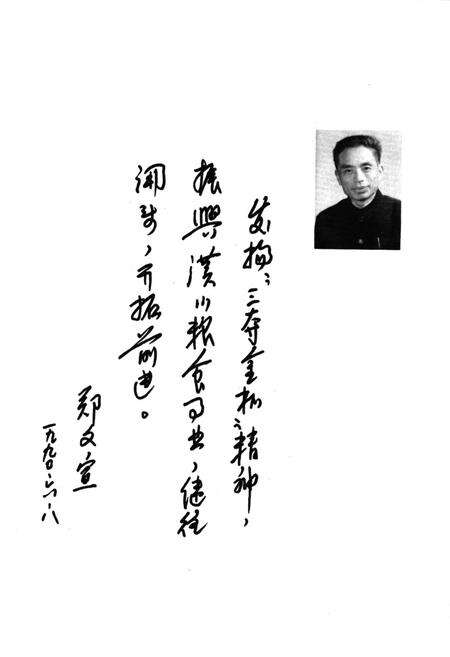 发扬“三夺金杯”精神，
振興漢川粮食事业，继往
開来，开拓前進。
郑文宣
一九九〇.六.八